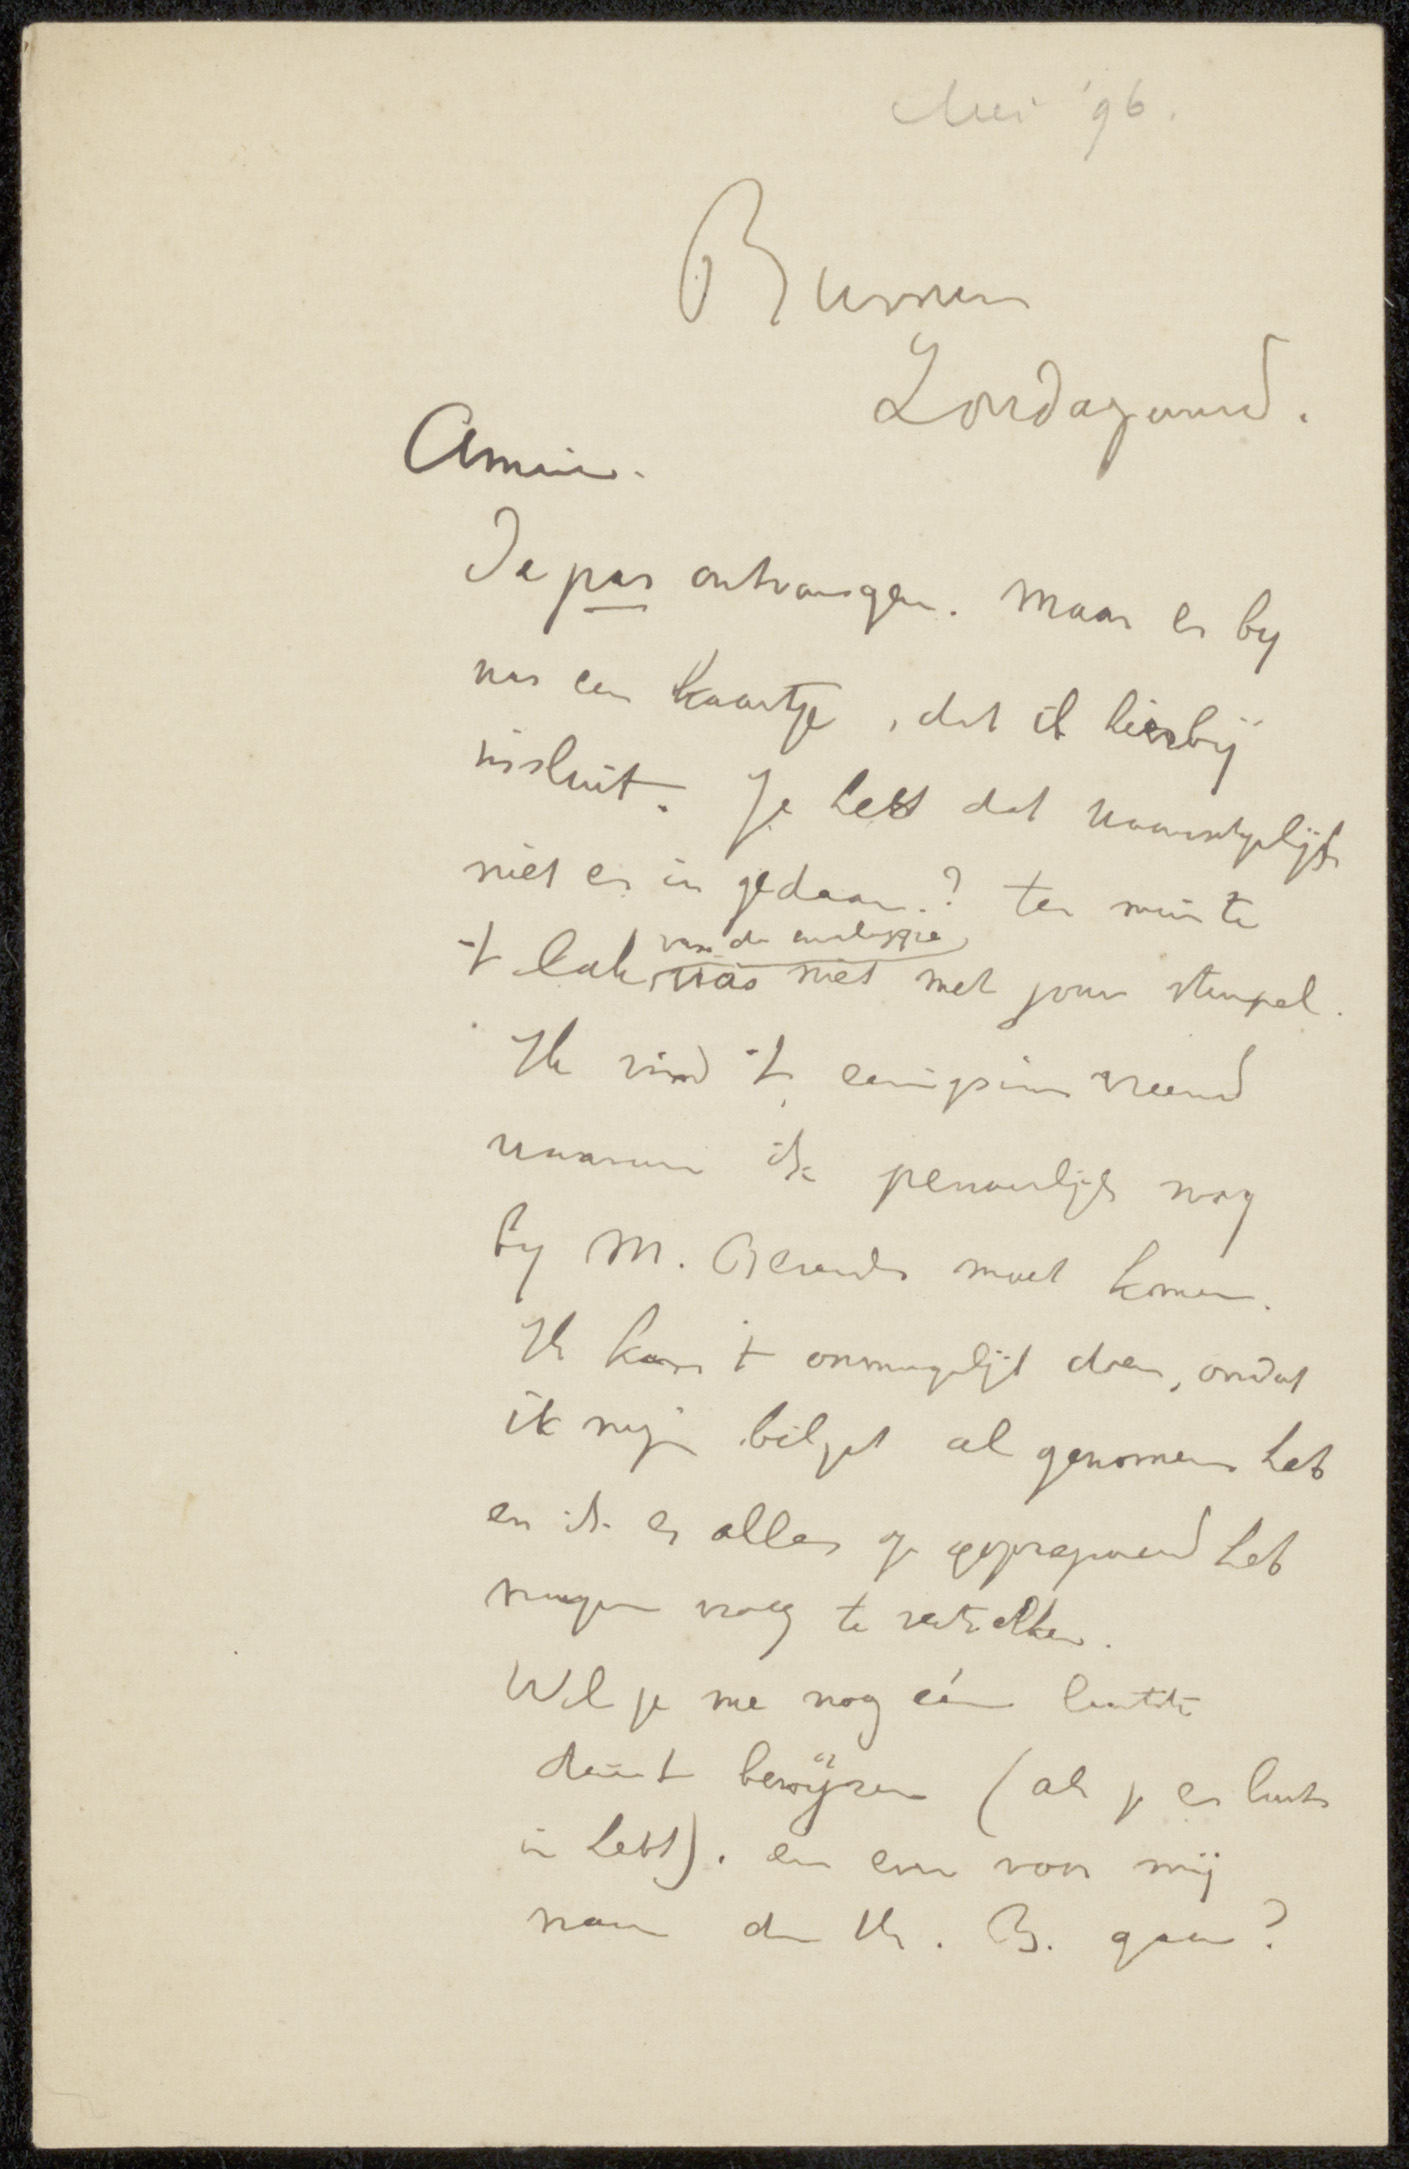 Mei '96.
Bussum
Zondagavond.
Amice.
De pas ontvangen. Maar er by
was een kaartje, dat ik hierbij
insluit. Je hebt dat waarschijnlijk
niet er in gedaan.? ten minste
van de enveloppe
't lak was niet met jouw stempel.
Ik vind 't eenigszins vreemd
waarom ik persoonlijk nog
by M. moet komen.
Ik kan 't onmogelijk doen, omdat
ik mijn biljet al genomen heb
en ik er alles op geprepareerd heb
morgen vroeg te vertrekken.
Wil je me nog één laatste
dienst bewijzen (als je er lust
in hebt). en even voor mij
naar den Hr. B. gaan?